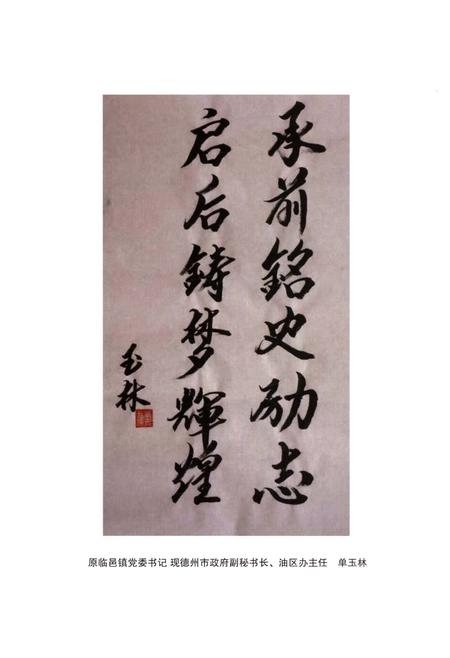 承前銘史励志
启后鋳梦輝煌
玉林
原临邑镇党委书记 现德州市政府副秘书长、油区办主任 单玉林